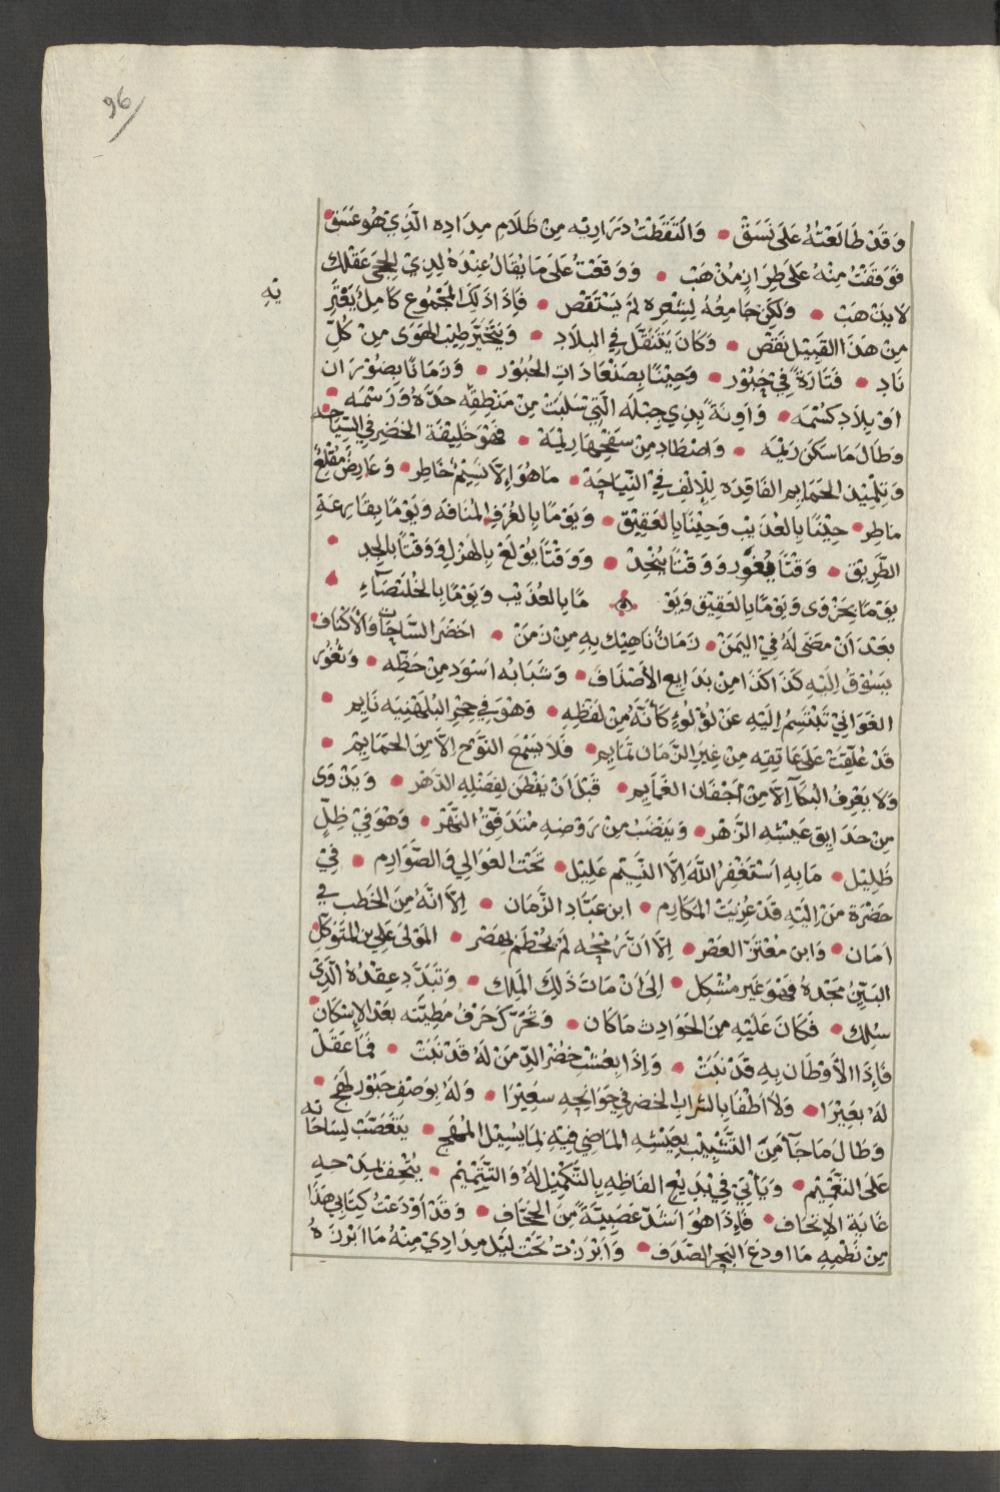 96
وَقَدْ طَالَعْتُهُ عَلَى نَسَقْ • وَالْتَقَطْتُ دَرَارِيَه مِنْ ظَلَامِ مِدَادِه الَّذِيْ هُو غَسَقْ •
فَوَقَفْتُ مِنْهُ عَلَى طِرَازِ مُذْهَبْ • وَوَقَعْتُ عَلَى مَا يُقَالُ عِنْدَهُ لِذِيْ الحِجَى عَقْلُكَ
لَا يَذْهَبْ • وَلَكِنْ جَامِعُهُ لِشِعْرِه لَمْ يَسْتَقْصِ • فَإِذَا ذَلِكَ المَجْمُوع كَامِلٌ يَعْتَرِيْهِ
مِنْ هَذَا القَبِيْل نَقْصْ • وَكَانَ يَتَنَقَّل فِي البِلَاد • وَيَتَخَيَّر طِيْبَ الهَوَى مِنْ كُلِّ
نَادِ • فَتَارَةً فِيْ حُبُوْر • وَحِيْنًا بِصَنْعَا ذَاتِ الحُبُوْر • وَزَمَانًا بِصُوْرَان
اوْ بِلَادِ كسُمَه • وَاوِنَةً بِذِي جِبْلَه الَّتِيْ سَلَبَتْ مِنْ مَنْطِقِه حَدَّهُ وَرَسْمَه •
وَطَالَ مَا سَكَنَ رَيْمَه • وَاصْطَادِ مِنْ سَفْحِهَا رِيْمَة • فَهُوَ خَلِيْفَة الخَضِرِ فِي السِّيَاحَه
وَتِلْمِيْذ الحَمَايِم الفَاقِدَه لِلْإلْفِ فِيْ النِّيَاحَة • مَاهُوَ إِلَّا نَسِيْمٌ خَاطِر • وَعَارِضٌ مُقْلِعٌ
مَاطِر • حِيْنًا بِالعُذَيْب وَحِيْنًا بِالعَقِيْق • وَيَوْمًا بِالغُرَفِ المُنَافَه وَيَوْمًا بِقَارِعَةِ
الطَّرِيْق • وَقْتًا يُغوِر وَوَقْتًا يُنْجِدْ • وَوَقْتًا يُوْلَعُ بِالهَزْلِ وَوَقْتًا بِالجِد •
يَوْمًا بِحَزْوَى وَيَوْمًا بِالعَقِيْق وَيَوْ مًا بِالعُذَيْب وَيَوْمًا بِالخُلَيْصَآءِ •
بَعْدَ اَنْ مَضَى لَهُ فِيْ اليَمَنْ • زَمَانٌ نَاهِيْكَ بِهِ مِنْ زَمَنْ • اخضَر السَّاحَاتِ وَالْأَكْنَاف •
يَسُوْقُ اِلَيْهِ كَذَا كَذَا مِنْ بَدَايِع الأَصْنَاف • وَشَبَابُه اسْوَد مِنْ حَظِّه • وَثُغُوْر
الغَوَانِيْ تَبْتَسِمُ اِلَيْهِ عَنْ لُؤْلُوءٍ كَأَنَّهُ مِنْ لَفْظِهِ • وَهْوَ فِي حِجْرِ البُلَهْنِيَه نَايِم •
قَدْ عُلِّقَتْ عَلَى عَاتِقِهِ مِنْ غِيَرِ الزَّمَان تَمَايِم • فَلَا يَسْمَعُ النَّوْح الَّا مِنَ الحَمَايِمْ •
وَلَا يَعْرِفُ البُكَآ اِلَّا مِنْ اَجْفَان الغَمَايِم • قَبْلَ اَنْ يَفْطَن لِفَضْلِهِ الدَّهْر • وَيَذْوَى
مِنْ حَدَايِق عَيْشِه الزَّهْر • وَيَنْضَبُ مِنْ رَوْضِهِ مُتَدَفِّقُ النَّهْر • وَهْوَ فِيْ ظِلٍّ
ظَلِيْل • مَا بِهِ اسْتَغْفِرُ اللهَ اِلَّا النَّسِيْم عَلِيْل • تَحْتَ العَوَالِي وَالصَّوَارِم • فِيْ
حَضْرَة مَنْ اِلَيْهِ قَدْ عُزِيَتْ المَكَارِم • ابن عَبَّادِ الزَّمَان • اِلَّا اَنَّهُ مِنَ الخَطب فِي
اَمَان • وَابن مُعْتَزّ العَصْر • اِلَّا اَنَّ رُمْحُه لَمْ يُحْطَمْ بِهَصْر • المَوْلَى عَلِي بن المُتَوَكِّل
البَيِّنُ مَجْدُهُ فَهْوَ غَير مُشْكِل • اِلَى اَنْ مَاتَ ذَلِكَ المَلِك • وَتَبَدَّدَ عِقْدُهُ الَّذِيْ
سُلِك • فَكَانَ عَلَيْهِ مِنَ الحَوَادِث مَا كَان • وَتَحَرَّكَ حَرْفُ مَطِيَّتِه بَعْدَ الإِسْكَان •
فَإِذَا الأَوْطَان بِهِ قَدْ نَبَتْ • وَاِذَا بِعُشْبِ خَضْرِ الدِّمَنْ لَهُ قَدْ نَبَتْ • فَمَا عَقَلْ
لَهُ بَعِيْرَا • وَلَا اَطْفَا بِالشَّرَابِ الخضر فِي جَوَانِحِهِ سَعِيْرَا • وَلَهُ بِوَصْفِ حَبُوْر لَهَج •
وَطَالَ مَا جَآءَ مِنَ التَّشْبِيْبِ بِعَيْشِهِ المَاضِي فِيْهِ بِمَا يُسِيْل المُهَج • يَتَعَصَّبُ لِسَاحَاتِه
عَلَى التَّعْمِيْم • وَيَأْتِيْ فِيْ بَدِيْع الفَاظِهِ بِالتَّكْمِيْل لَهُ وَالتَّتْمِيْم • يُتْحِفُ بِمَدْحِهِ
غَايَة الإِتْحَاف • فَإِذَا هُوَ اَشَدّ عَصَبِيَّةً مِنَ الخَفَّاف • وَقَدْ اوْدَعْتُ كِتَابِي هَذَا
مِنْ نَظْمِهِ مَا اودَعَ البَحرُ الصَّدَف • وَاَبْرَزْتُ تَحْتَ لَيْل مِدَادِيْ مِنْهُ مَا ابْرَزَهُ